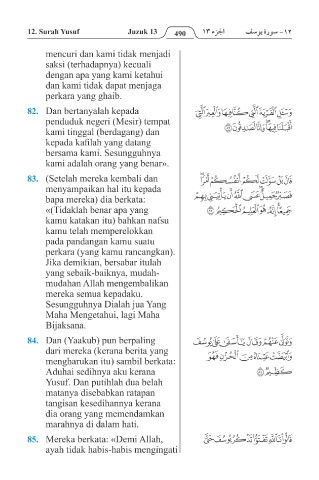 12. Surah Yusuf Juzuk 13 490 الجزء ١٣ ١٢ – سورة يوسف
mencuri dan kami tidak menjadi
saksi (terhadapnya) kecuali
dengan apa yang kami ketahui
dan kami tidak dapat menjaga
perkara yang ghaib.
82. Dan bertanyalah kepada
penduduk negeri (Mesir) tempat
kami tinggal (berdagang) dan
kepada kafilah yang datang
bersama kami. Sesungguhnya
kami adalah orang yang benar».
وَسْـَٔلِ ٱلْقَرْيَةَ ٱلَّتِى كُنَّا فِيهَا وَٱلْعِيرَ ٱلَّتِىٓ
أَقْبَلْنَا فِيهَا ۖ وَإِنَّا لَصَـٰدِقُونَ ﴿٨٢﴾
83. (Setelah mereka kembali dan
menyampaikan hal itu kepada
bapa mereka) dia berkata:
«(Tidaklah benar apa yang
kamu katakan itu) bahkan nafsu
kamu telah memperelokkan
pada pandangan kamu suatu
perkara (yang kamu rancangkan).
Jika demikian, bersabar itulah
yang sebaik-baiknya, mudah-
mudahan Allah mengembalikan
mereka semua kepadaku.
Sesungguhnya Dialah jua Yang
Maha Mengetahui, lagi Maha
Bijaksana.
قَالَ بَلْ سَوَّلَتْ لَكُمْ أَنفُسُكُمْ أَمْرًا ۖ
فَصَبْرٌ جَمِيلٌ ۖ عَسَى ٱللَّهُ أَن يَأْتِيَنِى بِهِمْ
جَمِيعًا ۚ إِنَّهُۥ هُوَ ٱلْعَلِيمُ ٱلْحَكِيمُ ﴿٨٣﴾
84. Dan (Yaakub) pun berpaling
dari mereka (kerana berita yang
mengharukan itu) sambil berkata:
Aduhai sedihnya aku kerana
Yusuf. Dan putihlah dua belah
matanya disebabkan ratapan
tangisan kesedihannya kerana
dia orang yang memendamkan
marahnya di dalam hati.
وَتَوَلَّىٰ عَنْهُمْ وَقَالَ يَـٰٓأَسَفَىٰ عَلَىٰ يُوسُفَ
وَٱبْيَضَّتْ عَيْنَاهُ مِنَ ٱلْحُزْنِ فَهُوَ
كَظِيمٌ ﴿٨٤﴾
85. Mereka berkata: «Demi Allah,
ayah tidak habis-habis mengingati
قَالُوا۟ تَٱللَّهِ تَفْتَؤُا۟ تَذْكُرُ يُوسُفَ حَتَّىٰ